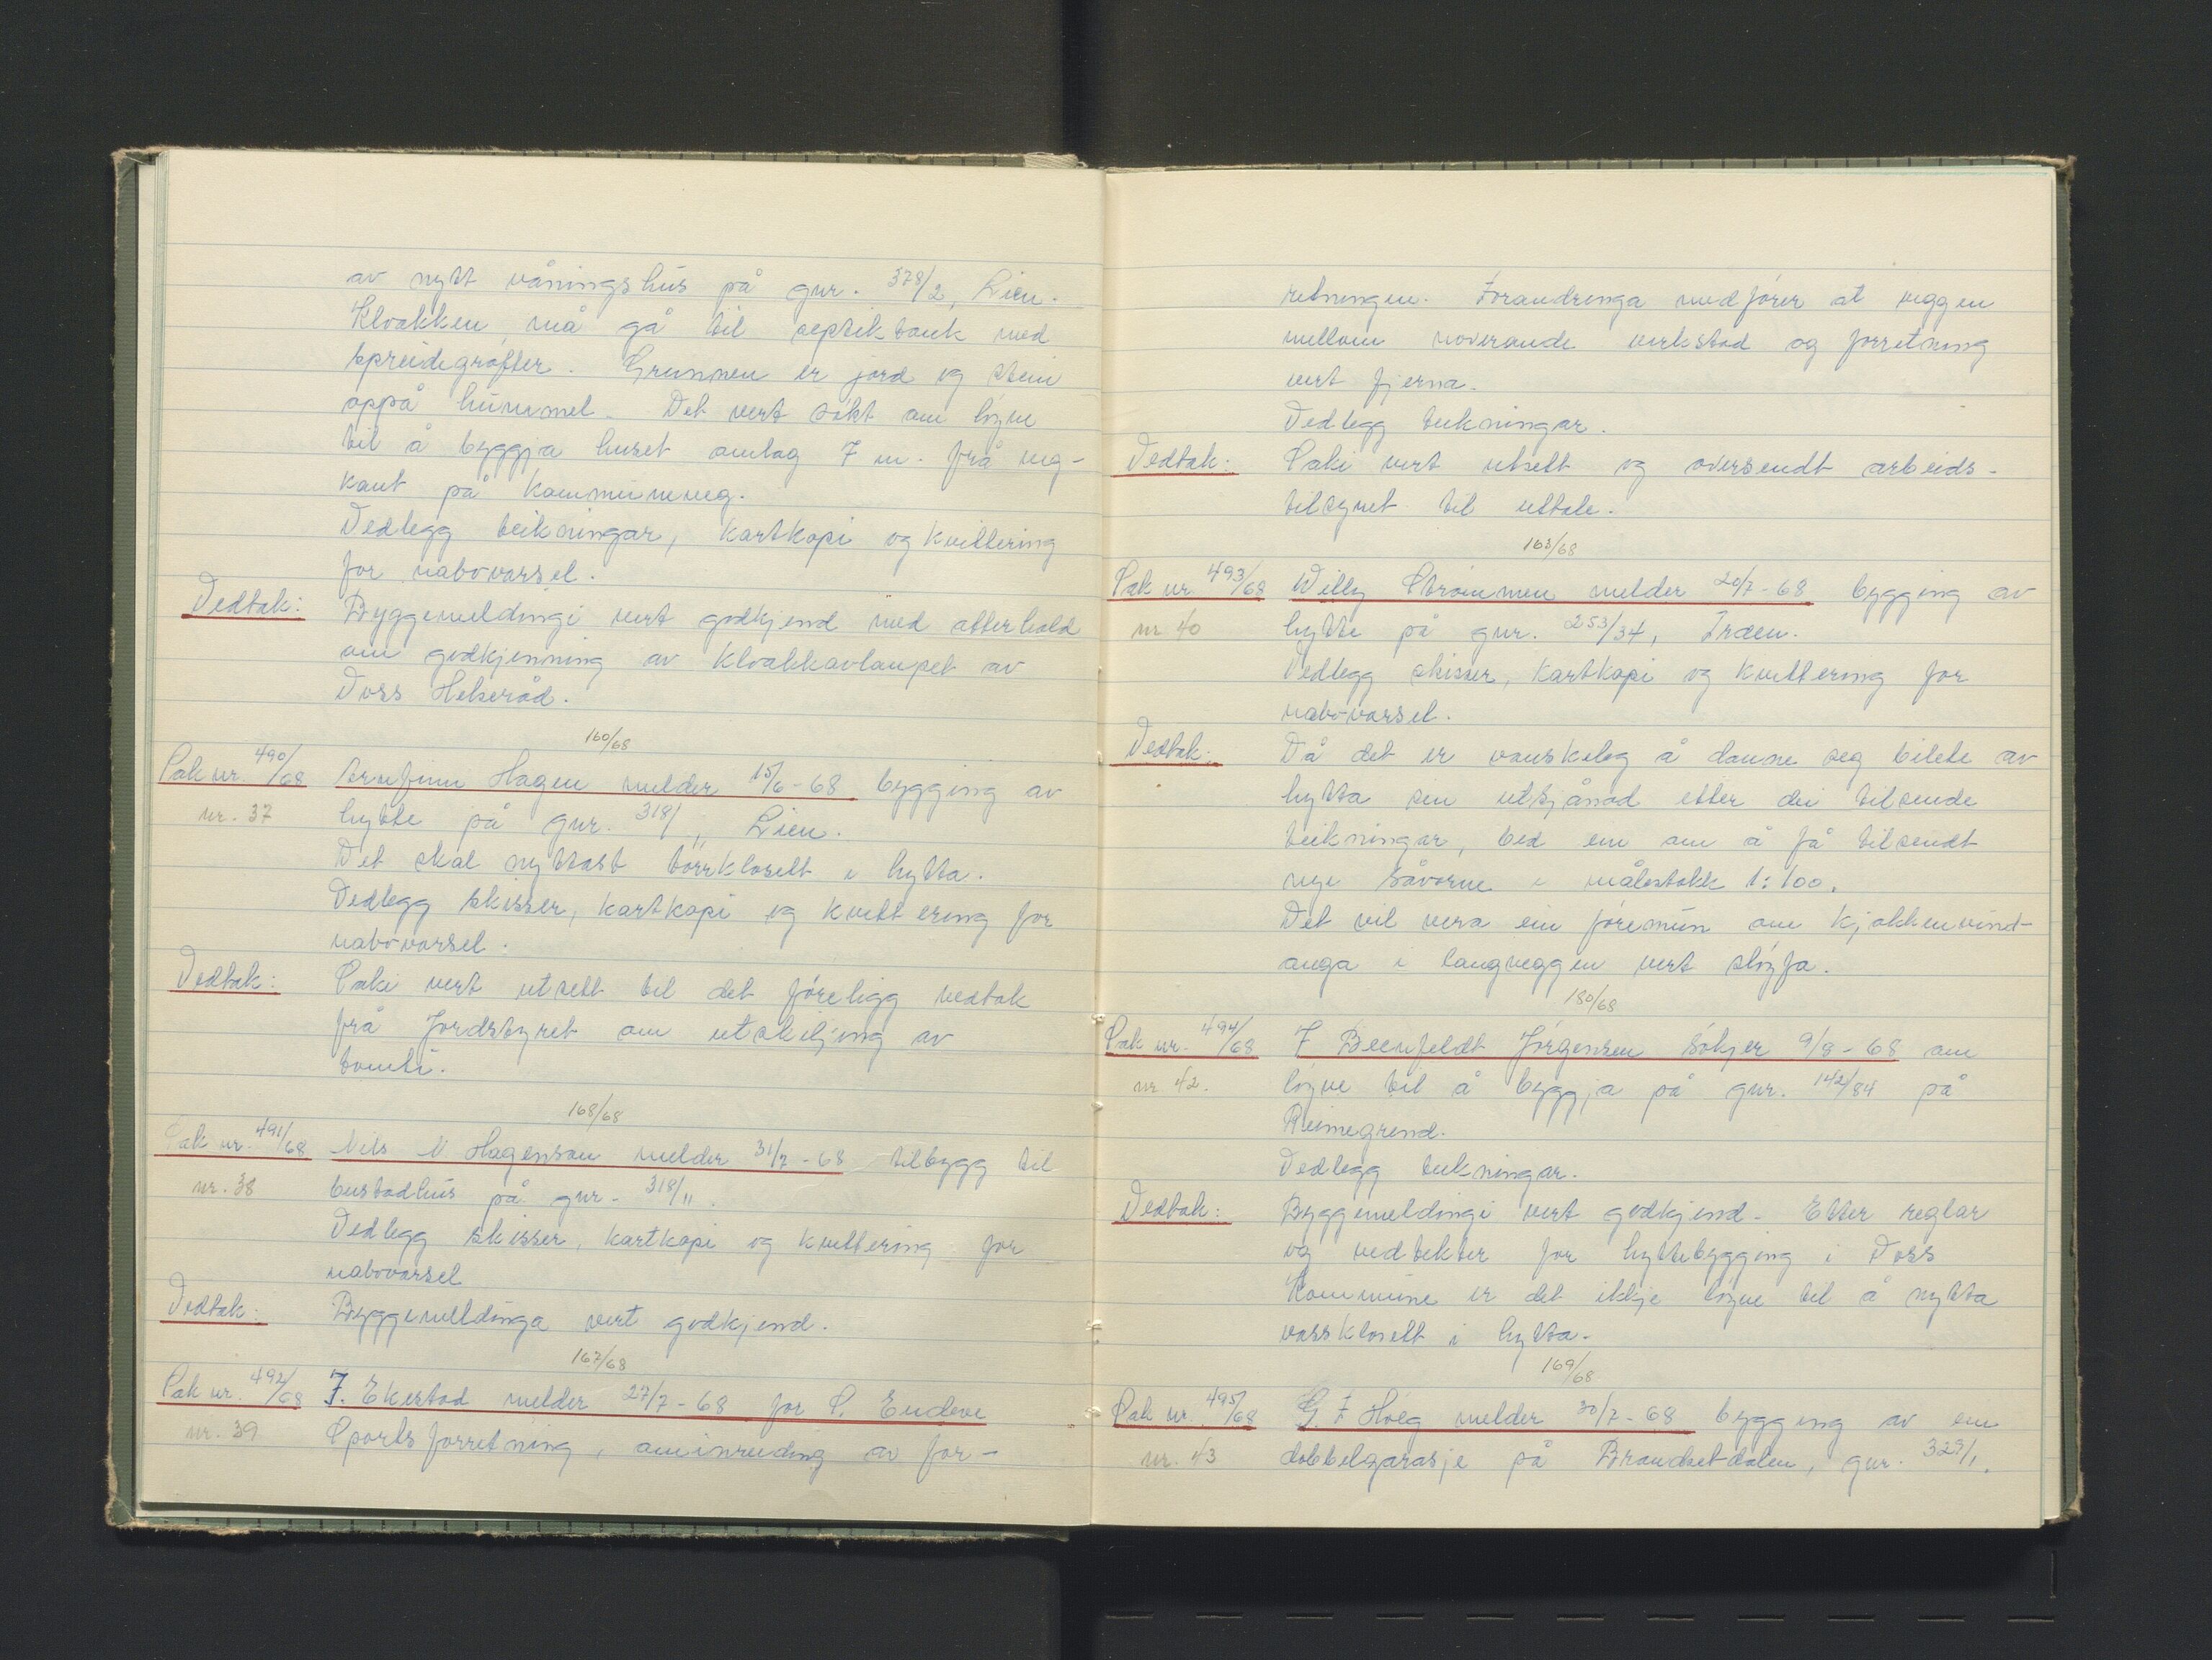 av nytt våningshus på gnr. 378/2, Lien.
Kloakken må gå til septiktank med
spreidegrøfter. Grunnen er jord og stein
oppå hummel. Det vert søkt om løyve
til å byggja huset omlag 7 m. frå veg-
kant på kommuneveg.
Vedlegg teikningar, kartkopi og kvittering
for nabovarsel.
Vedtak: Byggemeldingi vert godkjend med atterhald
om godkjenning av kloakkavlaupet av
Voss Helseråd.
160/68
Sak nr. 490/68 Arnfinn Hagen melder 15/6-68 bygging av
nr. 37 hytte på gnr. 318/11, Lien.
Det skal nyttast tørrklosett i hytta.
Vedlegg skisser, kartkopi og kvittering for
nabovarsel.
Vedtak: Saki vert utsett til det føreligg vedtak
frå Jordstyret om utskiljing av
tomti.
168/68
Sak nr. 491/68 Nils N Hagenson melder 31/7-68 tilbygg til
nr. 38 bustadhus på gnr. 318/11.
Vedlegg skisser, kartkopi og kvittering for
nabovarsel
Vedtak: Byggemeldinga vert godkjend.
167/68
Sak nr. 492/68 J. Ekestad melder 27/7-68 for S. Endeve
nr. 39 Sportsforretning, ominreiding av for-
retningen. Forandringa medfører at veggen
mellom noverande verkstad og forretning
vert fjerna.
Vedlegg teikningar.
Vedtak: Saki vert utsett og oversendt arbeids-
tilsynet til uttale.
163/68
Sak nr 493/68 Willy Strømmen melder 20/7-68 bygging av
nr 40 hytte på gnr. 253/34, Trøen.
Vedlegg skisser, kartkopi og kvittering for
nabovarsel.
Vedtak: Då det er vanskeleg å danne seg bilete av
hytta sin utsjånad etter dei tilsende
teikningar, bed ein om å få tilsendt
nye såvorne i målestokk 1:100.
Det vil vera ein føremun om kjøkkenvind-
auga i langveggen vert sløyfa.
180/68
Sak nr. 494/68 J Beenfeldt Jørgensen søkjer 9/8-68 om
nr 42. løyve til å byggja på gnr. 142/84 på
Reimegrend.
Vedlegg teikningar.
Vedtak: Byggemeldingi vert godkjend. Etter reglar
og vedtekter for hyttebygging i Voss
Kommune er det ikkje løyve til å nytta
vassklosett i hytta.
169/68
Sak nr 495/68 G. F Høeg melder 30/7-68 bygging av ein
nr. 43 dobbelgarasje på Brandsetdalen, gnr. 329/1.